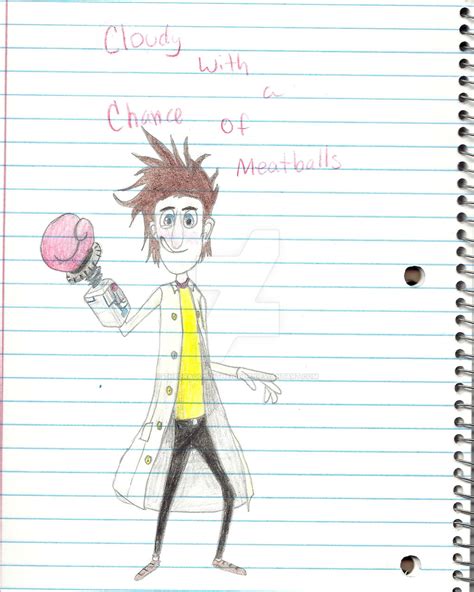 Cloudy
with
a
Chance of
Meatballs